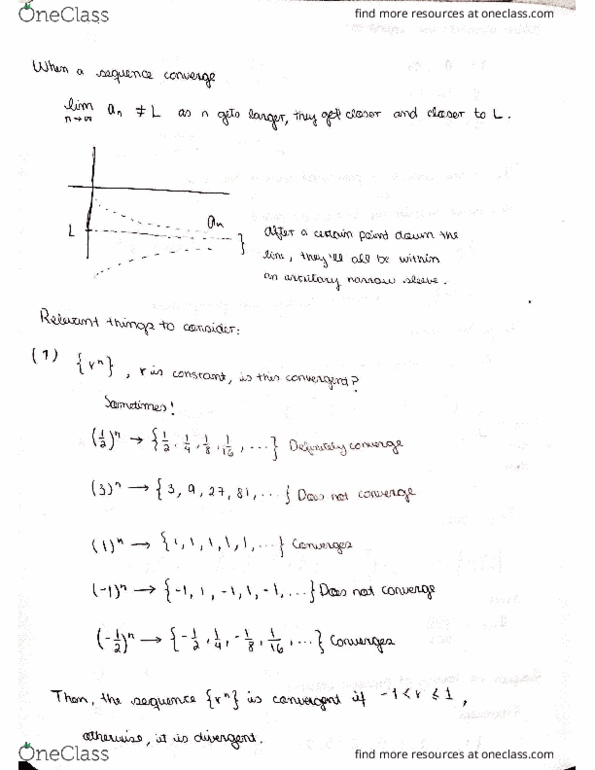 OneClass
find more resources at oneclass.com
When a sequence converge
lim n→∞ an ≠ L as n gets larger, they get closer and closer to L.
an
L
After a certain point down the
line, they'll all be within
an arcitary narrow sleeve.
Relevant things to consider:
(1) {rⁿ}, r is constant, is this convergent?
Sometimes!
(1/2)ⁿ → {1/2, 1/4, 1/8, 1/16, ...} Definitely converge
(3)ⁿ → {3, 9, 27, 81, ...} Does not converge
(1)ⁿ → {1, 1, 1, 1, 1, ...} Converges
(-1)ⁿ → {-1, 1, -1, 1, -1, ...} Does not converge
(-1/2)ⁿ → {-1/2, 1/4, -1/8, 1/16, ...} Converges
Then, the sequence {rⁿ} is convergent if -1 < r ≤ 1,
otherwise, it is divergent.
OneClass
find more resources at oneclass.com